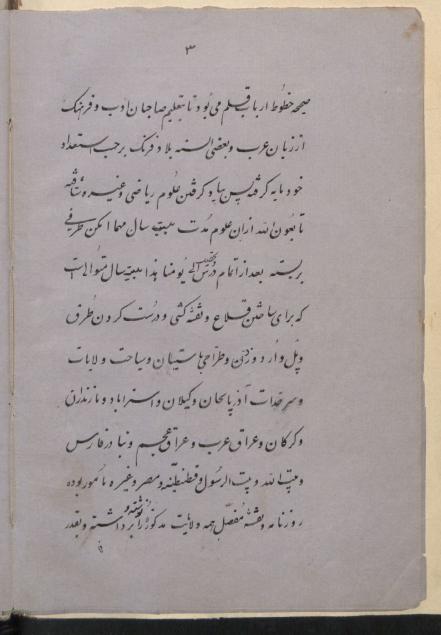 ۳
صحه خطوط ارباب قلم می بود تا بتعلیم صاحبان ادب و فرهنک
از زبان عرب و بعضی السنه بلاد فرنک برحسب استعداد
خود مایه گرفته پس بیاد گرفتن علوم ریاضی و غیره شتافته
تا بعون الله از ان علوم مدت بیست سال مهما امکن طرفی
بر بسته بعد از اتمام درس تحصیل الی یومنا هذا بیست سال متوالیات
که برای ساختن قلاع و نقشه کشی و درست کردن طرق
و پل و اردو زدن و طراحی باستیان و سیاحت ولایات
و سرحدات آذربایجان و گیلان و استراباد و مازندران
و کرکان و عراق عرب و عراق عجم و بنادر فارس
و بیت الله و بیت الرسول و قسطنطنیه و مصر و غیره مامور بوده
روزنامه و نقشه مفصل همه ولایت مذکور را نوشته و برداشته و بقدر